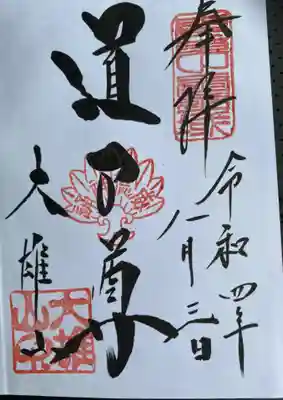 奉拝
令和四年
八月三日
道了尊
大雄山
大雄山印